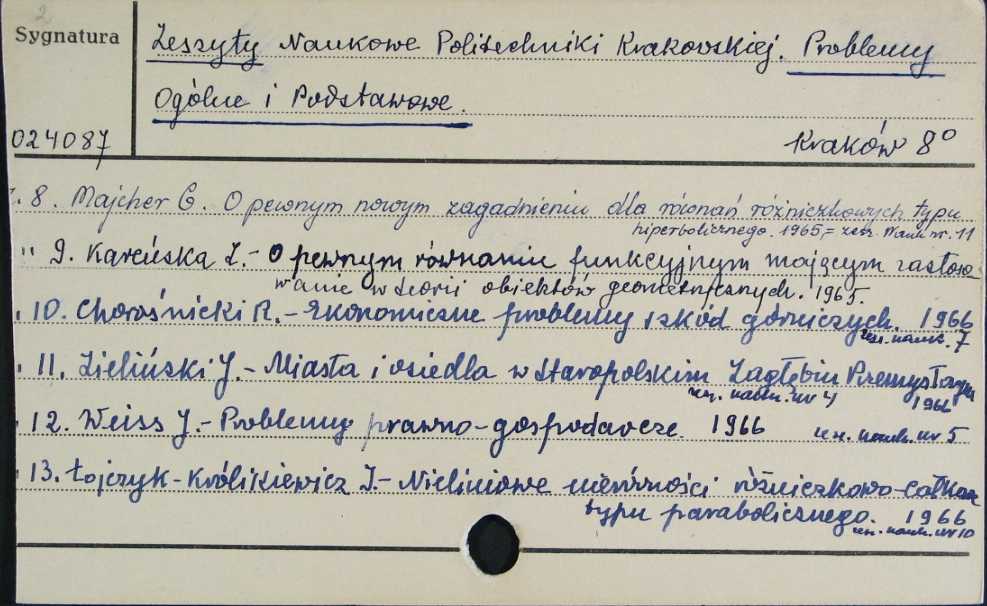 2
Sygnatura
Zeszyty Naukowe Politechniki Krakowskiej. Problemy
Ogólne i Podstawowe.
024087
Kraków 8°
z. 8. Majcher G. O pewnym nowym zagadnieniu dla równań różniczkowych typu
hiperbolicznego. 1965 = zesz. Nauk. nr. 11
" 9. Kareńska Z. - O pewnym równaniu funkcyjnym mającym zastoso-
wanie w teorii obiektów geometrycznych. 1965.
" 10. Chorośnicki R. - Ekonomiczne problemy szkód górniczych. 1966
zesz. nauk. 7
" 11. Zieliński J. - Miasta i osiedla w Staropolskim Zagłębiu Przemysłowym
zesz. nauk. nr 4 1966
" 12. Weiss J. - Problemy prawno-gospodarcze. 1966 zesz. nauk. nr 5
" 13. Łojczyk-Królikiewicz I. - Nieliniowe nierówności różniczkowo-całkowe
typu parabolicznego. 1966
zesz. nauk. nr 10